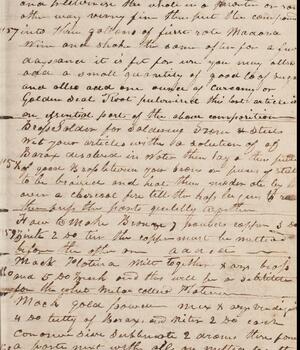 and pulverise the whole in a mortar or some
other way verry fine then put the compound
157 into three gallons of first rate Madara
Wine and shake the same often for a few
days and it is fit for use you may allso
add a small quantity of good loaf sugar
and allso add one ounce of curcumy or
Golden Seal Root pulverised this last article is
an essential part of the above composition
Brass Solder for Soldering Iron & Steel
Wet your articles with a solution of
158 Borax disolved in Water then lay a thin
of good Brass between your iron or pieces of steel
to be and heat them moderate
over a charcoal fire till the brass begins to
the parts together
How to Make Bronze 7 pounds copper 3 Do
Zink 2 Do tin the copper must be melted
before the other are added
Mock Platina Melt together 8 oz brass
and 5 Do Zink and this will be a substitute
for the metal called Platina
Mock Gold powder mix 8 oz Verdigris
4 Do tutty of Borax and Niter 2 Do each
Corosive Sublimate 2 drams
a paste with oil